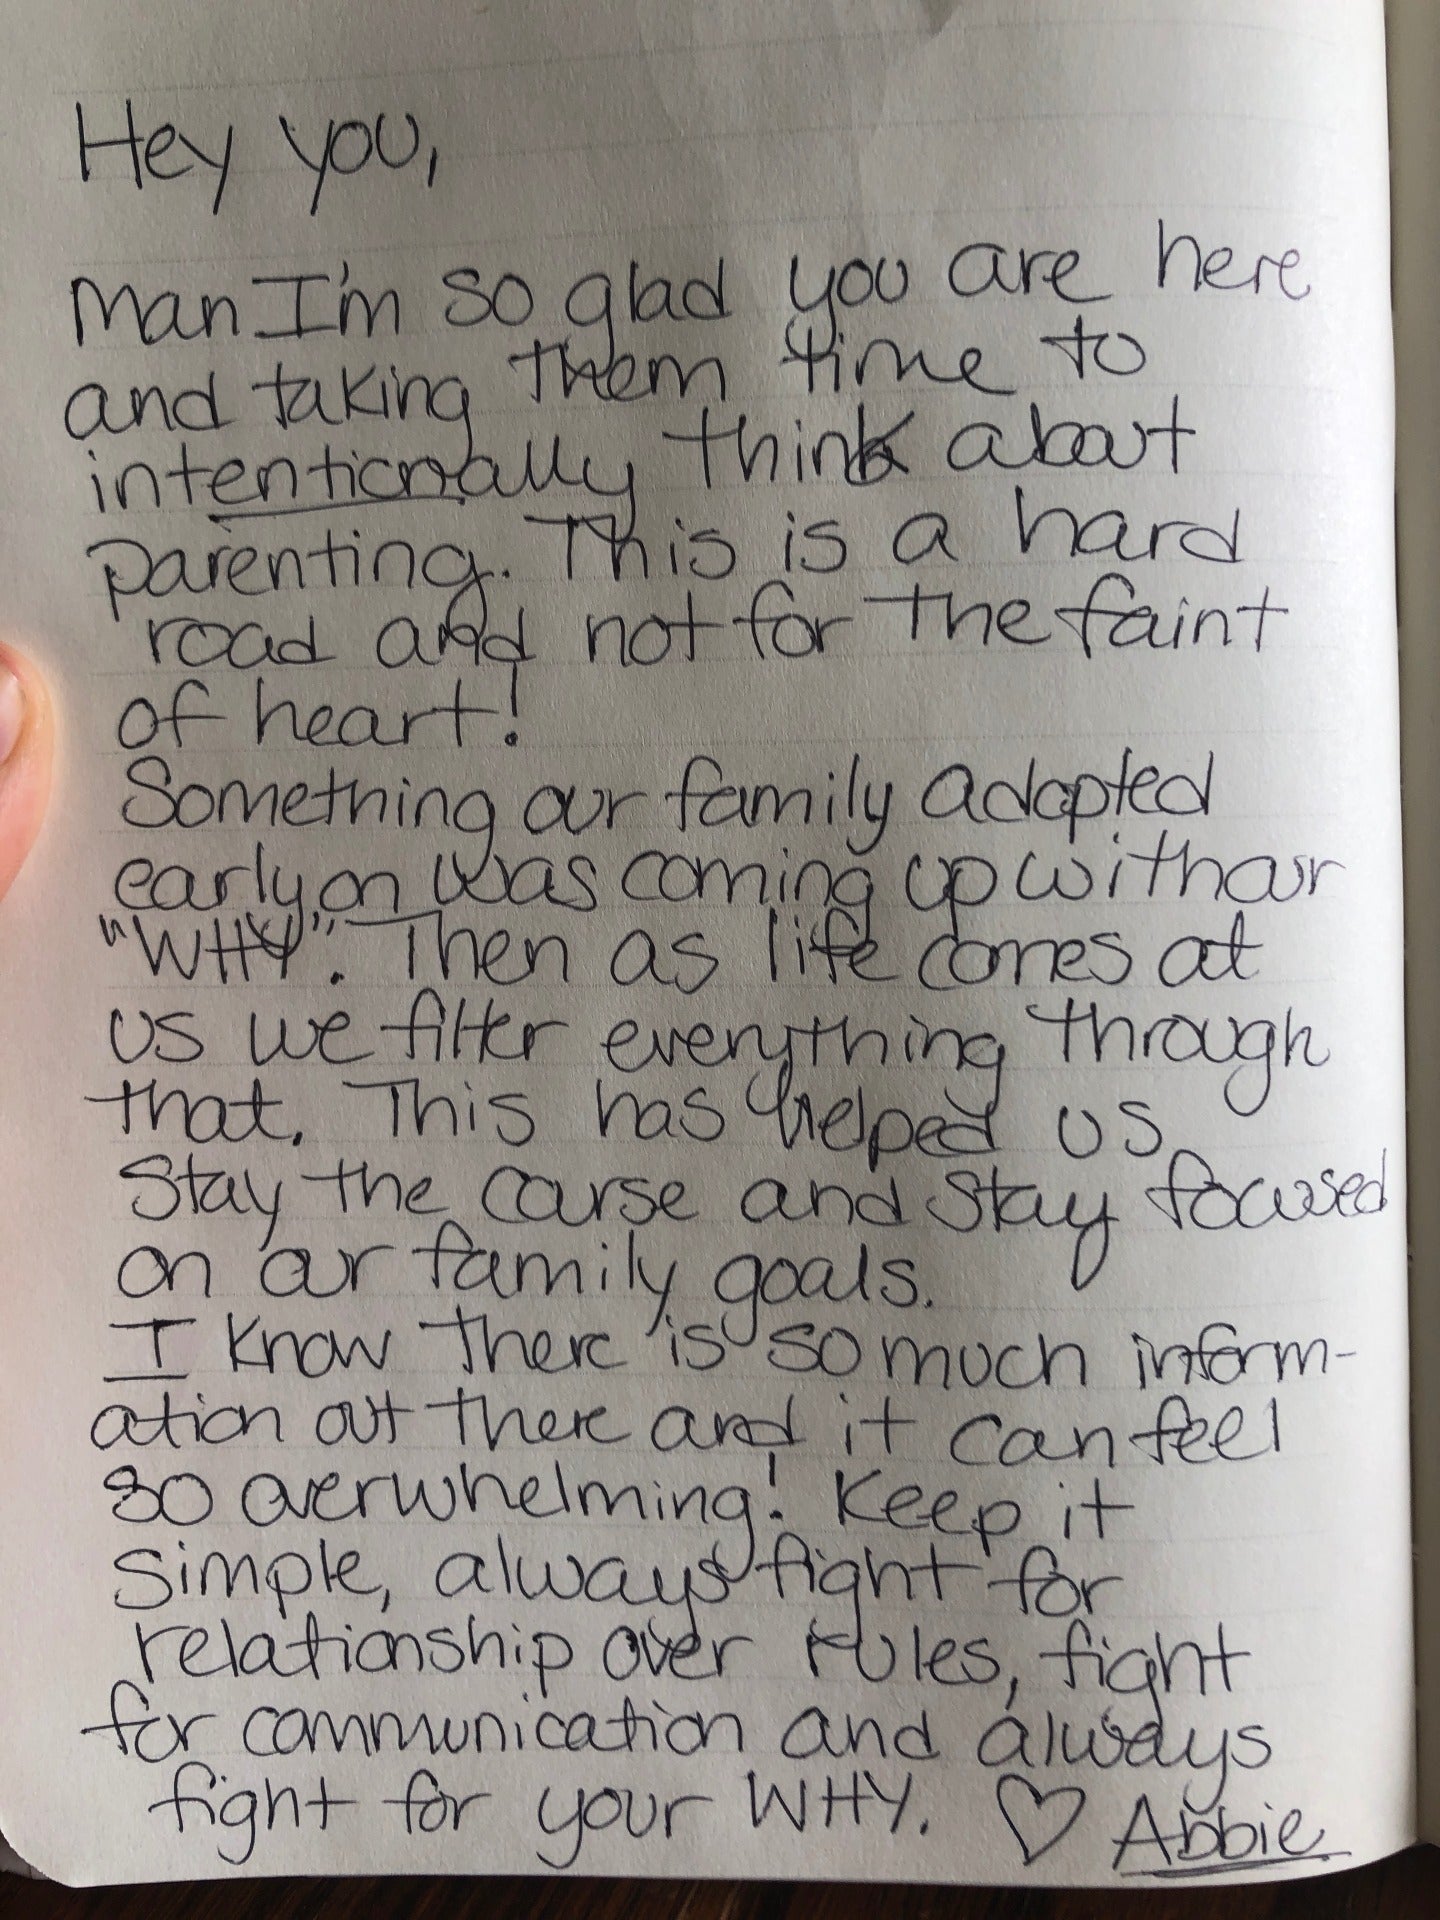 Hey you,
Man I'm so glad you are here
and taking them time to
intentionally think about
parenting. This is a hard
road and not for the faint
of heart!
Something our family adopted
early on was coming up with our
"WHY". Then as life comes at
us we filter everything through
that. This has helped us
stay the course and stay focused
on our family goals.
I know there is so much inform-
ation out there and it can feel
so overwhelming! Keep it
simple, always fight for
relationship over rules, fight
for communication and always
fight for your WHY. ♡ Abbie